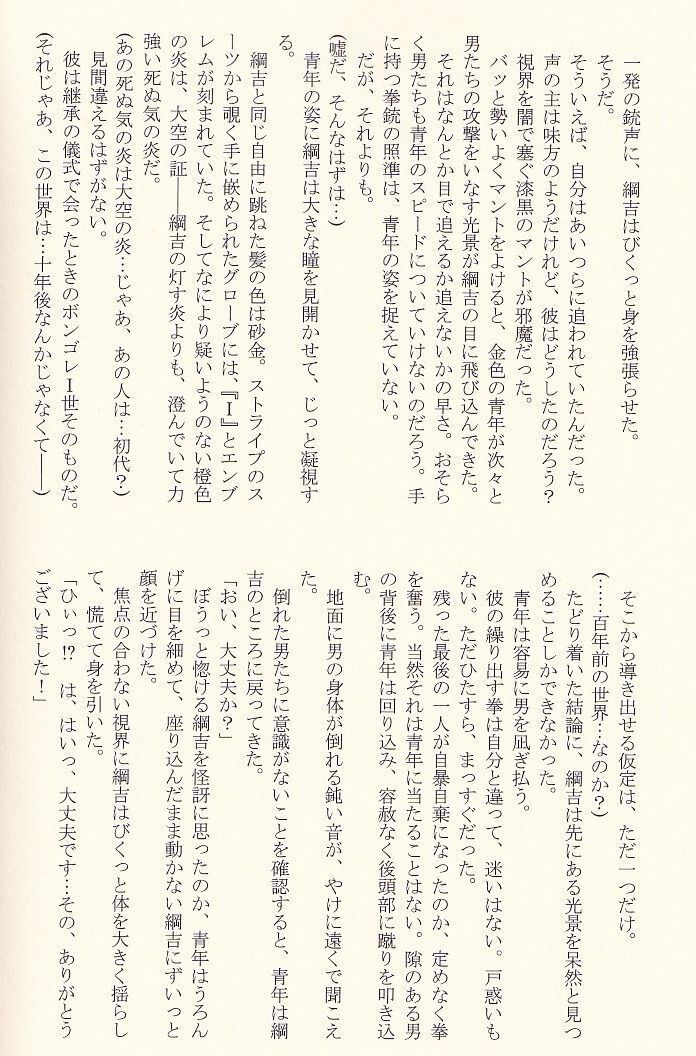 一発の銃声に、綱吉はびくっと身を強張らせた。
そうだ。
そういえば、自分はあいつらに追われていたんだった。
声の主は味方のようだけれど、彼はどうしたのだろう?
視界を闇で塞ぐ漆黒のマントが邪魔だった。
バッと勢いよくマントをよけると、金色の青年が次々と
男たちの攻撃をいなす光景が綱吉の目に飛び込んできた。
それはなんとか目で追えるか追えないかの早さ。おそら
く男たちも青年のスピードについていけないのだろう。手
に持つ拳銃の照準は、青年の姿を捉えていない。
だが、それよりも。
(嘘だ、そんなはずは…)
青年の姿に綱吉は大きな瞳を見開かせて、じっと凝視す
る。
綱吉と同じ自由に跳ねた髪の色は砂金。ストライプのス
ーツから覗く手に嵌められたグローブには、『Ⅰ』とエンブ
レムが刻まれていた。そしてなにより疑いようのない橙色
の炎は、大空の証――綱吉の灯す炎よりも、澄んでいて力
強い死ぬ気の炎だ。
(あの死ぬ気の炎は大空の炎…じゃあ、あの人は…初代?)
見間違えるはずがない。
彼は継承の儀式で会ったときのボンゴレⅠ世そのものだ。
(それじゃあ、この世界は…十年後なんかじゃなくて――)
そこから導き出せる仮定は、ただ一つだけ。
(……百年前の世界…なのか?)
たどり着いた結論に、綱吉は先にある光景を呆然と見つ
めることしかできなかった。
青年は容易に男を凪ぎ払う。
彼の繰り出す拳は自分と違って、迷いはない。戸惑いも
ない。ただひたすら、まっすぐだった。
残った最後の一人が自暴自棄になったのか、定めなく拳
を奮う。当然それは青年に当たることはない。隙のある男
の背後に青年は回り込み、容赦なく後頭部に蹴りを叩き込
む。
地面に男の身体が倒れる鈍い音が、やけに遠くで聞こえ
た。
倒れた男たちに意識がないことを確認すると、青年は綱
吉のところに戻ってきた。
「おい、大丈夫か?」
ぼうっと惚ける綱吉を怪訝に思ったのか、青年はうろん
げに目を細めて、座り込んだまま動かない綱吉にずいっと
顔を近づけた。
焦点の合わない視界に綱吉はびくっと体を大きく揺らし
て、慌てて身を引いた。
「ひぃっ!? は、はいっ、大丈夫です…その、ありがとう
ございました!」